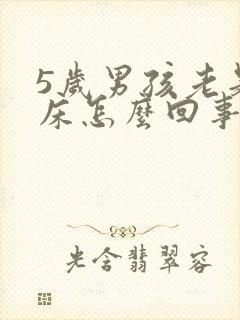 5歲男孩老是
床怎麼回事
光含翡翠容